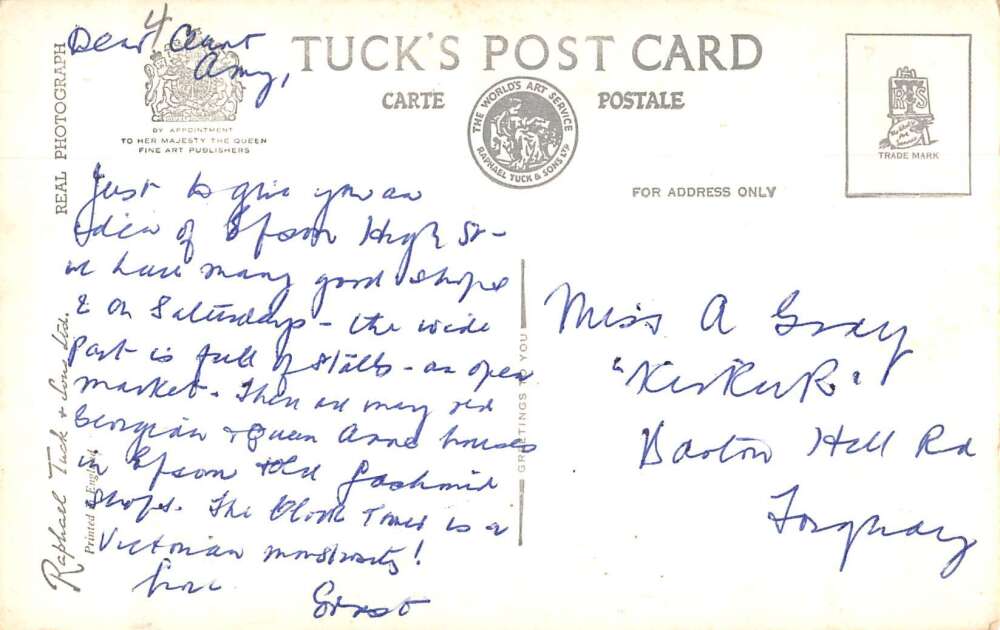 4
Dear Aunt
Amy,
TUCK'S POST CARD
CARTE POSTALE
THE WORLD'S ART SERVICE
RAPHAEL TUCK & SONS LTD
BY APPOINTMENT
TO HER MAJESTY THE QUEEN
FINE ART PUBLISHERS
REAL PHOTOGRAPH
RTS
TRADE MARK
FOR ADDRESS ONLY
Just to give you an
idea of Epsom High St -
we have many good shops
& on Saturdays - the wide
part is full of stalls - an open
market. There are many old
Georgian & Queen Anne houses
in Epsom & old fashioned
shops. The Clock Tower is a
Victorian monstrosity!
love
Ernest
GREETINGS TO YOU
Miss A Gray
Barton Hill Rd
Torquay
Raphael Tuck & Sons Ltd.
Printed in England